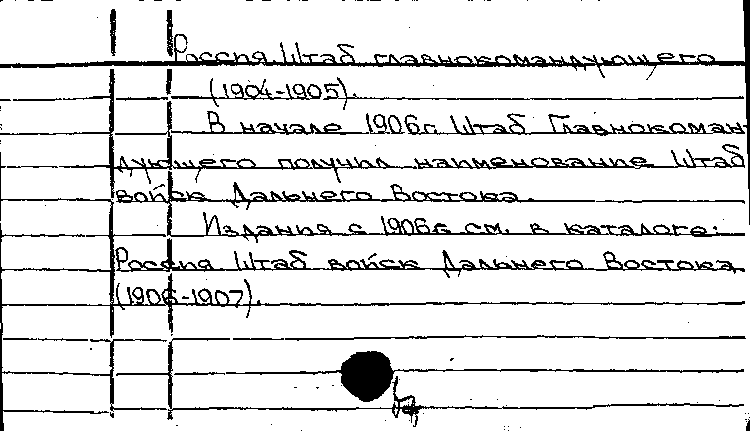 Россия. Штаб главнокомандующего
(1904-1905).
В начале 1906г. Штаб Главнокоман-
дующего получил наименование Штаб
войск Дальнего Востока.
Издания с 1906г. см. в каталоге:
Россия. Штаб войск Дальнего Востока
(1906-1907).